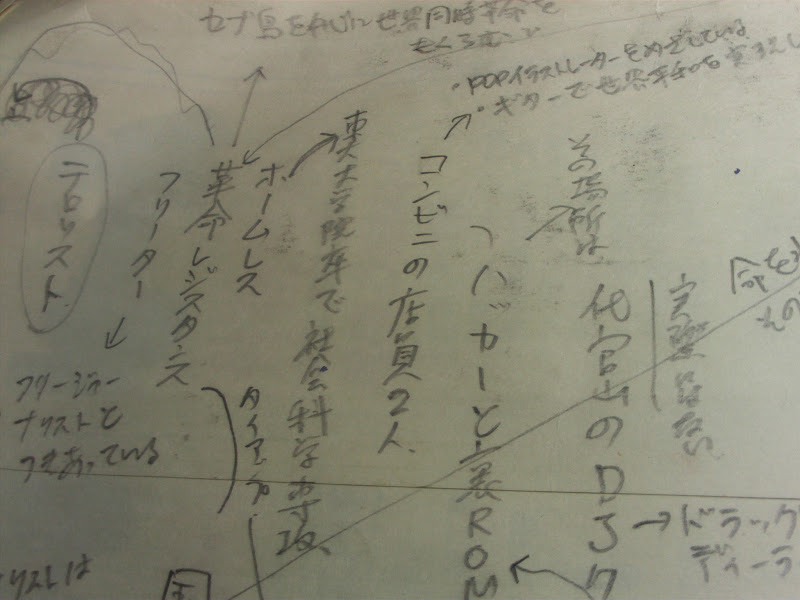 セブ島を舞台に世界同時革命を
もくろむ
・POPイラストレーターをめざしている
・ギターで世界革命を
命を
実際はない
その場所は
代官山のDJク
→ドラッグ
ディーラ
ハッカーと裏ROM
コンビニの店員2人
東大大学院卒で社会科学専攻
ホームレス
タイアップ
革命レジスタンス
フリーター
フリージャー
ナリストと
つきあっている
テロリスト
リストは